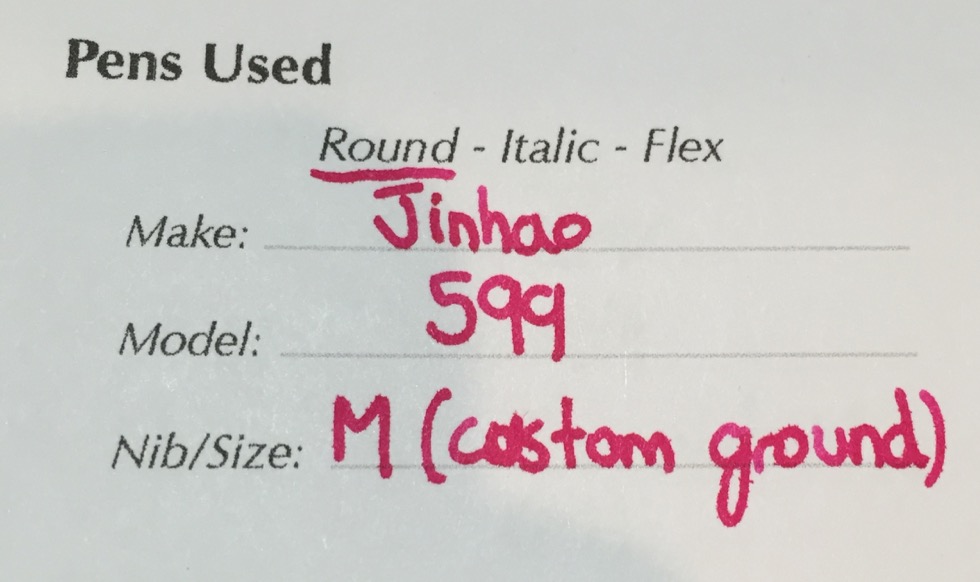 Pens Used
Round - Italic - Flex
Make: Jinhao
Model: 599
Nib/Size: M (custom ground)